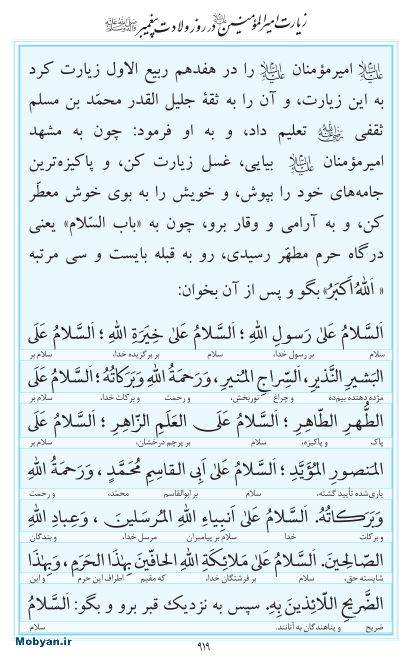 زیارت امیرالمؤمنین علیه السلام در روز ولادت پیغمبر صلی الله علیه وآله
علیه السلام امیرمؤمنان علیه السلام را در هفدهم ربیع الاول زیارت کرد
به این زیارت، و آن را به ثقهٔ جلیل القدر محمّد بن مسلم
ثقفی تعلیم داد، و به او فرمود: چون به مشهد
امیرمؤمنان علیه السلام بیایی، غسل زیارت کن، و پاکیزه‌ترین
جامه‌های خود را بپوش، و خویش را به بوی خوش معطّر
کن، و به آرامی و وقار برو، چون به «باب السّلام» یعنی
درگاه حرم مطهّر رسیدی، رو به قبله بایست و سی مرتبه
«اَللهُ اَکْبَرُ» بگو و پس از آن بخوان:
اَلسَّلامُ عَلیٰ رَسولِ اللهِ؛ اَلسَّلامُ عَلیٰ خِیَرَةِ اللهِ؛ اَلسَّلامُ عَلَی
سلام بر رسول خدا، سلام بر برگزیده خدا، سلام بر
البَشیرِ النَّذیرِ، اَلسِّراجِ المُنیرِ، وَرَحمَةُ اللهِ وَبَرَکاتُهُ؛ اَلسَّلامُ عَلَی
مژده دهنده بیم‌ده و چراغ نوربخش، و رحمت و برکات خدا، سلام بر
الطُّهرِ الطّاهِرِ؛ اَلسَّلامُ عَلَی العَلَمِ الزّاهِرِ؛ اَلسَّلامُ عَلَی
پاک و پاکیزه، سلام بر پرچم درخشان، سلام بر
المَنصورِ المُؤَیَّدِ؛ اَلسَّلامُ عَلیٰ اَبِی القاسِمِ مُحَمَّدٍ، وَرَحمَةُ اللهِ
یاری‌شده تأیید گشته، سلام بر ابوالقاسم محمّد، و رحمت
وَبَرَکاتُهُ. اَلسَّلامُ عَلیٰ اَنبِیاءِ اللهِ المُرسَلینَ، وَعِبادِ اللهِ
و برکات خدا سلام بر پیامبران مرسل خدا، و بندگان
الصّالِحینَ. اَلسَّلامُ عَلیٰ مَلائِکَةِ اللهِ الحافّینَ بِهٰذَا الحَرَمِ، وَبِهٰذَا
شایسته حق، سلام بر فرشتگان خدا، که مقیم اطراف این حرم و این
الضَّریحِ اللّائِذینَ بِهِ. سپس به نزدیک قبر برو و بگو: اَلسَّلامُ
ضریح و پناهندگان به آنانند. سلام
۹۱۹
Mobyan.ir